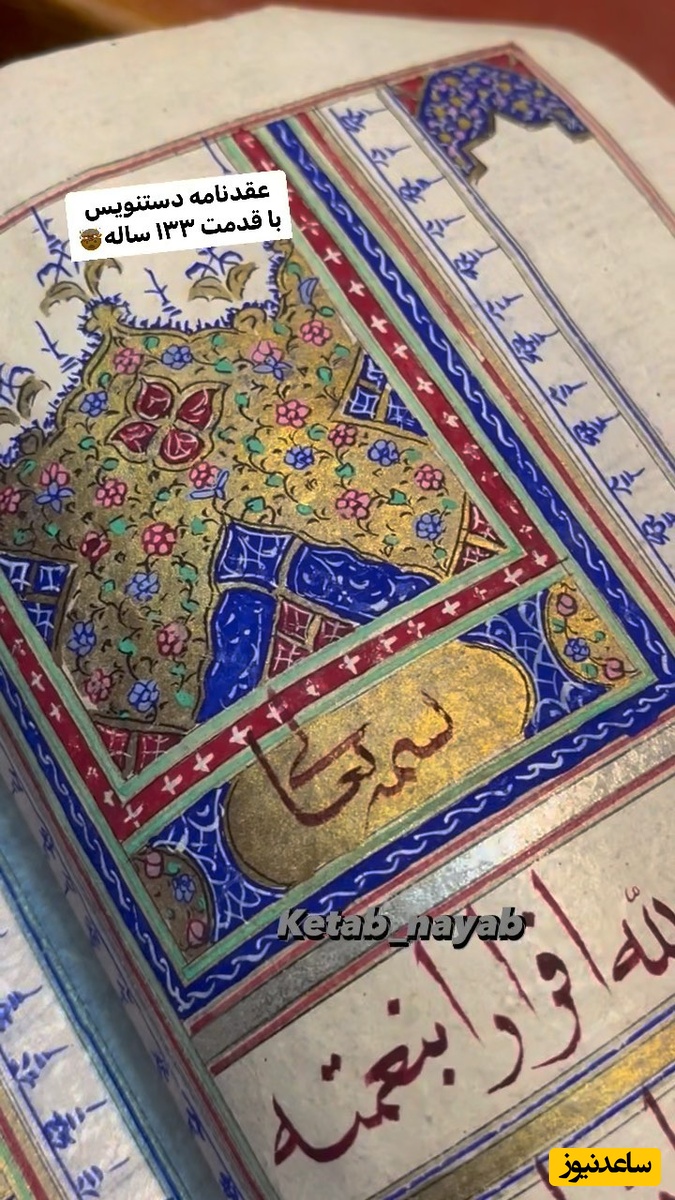 عقدنامه دستنویس
با قدمت ۱۳۳ ساله
بسمه تعالی
لله اقرارا بنعمته
Ketab_nayab
ساعدنیوز